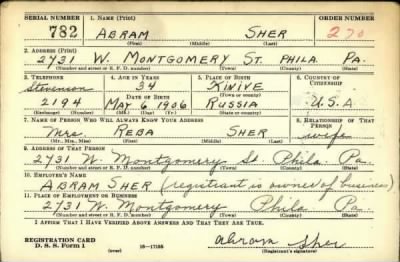 SERIAL NUMBER 1. NAME (Print) ORDER NUMBER
782 ABRAM SHER 270
(First) (Middle) (Last)
2. ADDRESS (Print)
2731 W. MONTGOMERY ST. PHILA. PA.
(Number and street or R. F. D. number) (Town) (County) (State)
3. TELEPHONE 4. AGE IN YEARS 5. PLACE OF BIRTH 6. COUNTRY OF CITIZENSHIP
Stevenson 34 KINIVE
DATE OF BIRTH (Town or county)
2194 MAY 6 1906 RUSSIA U.S.A
(Exchange) (Number) (Mo.) (Day) (Yr.) (State or country)
7. NAME OF PERSON WHO WILL ALWAYS KNOW YOUR ADDRESS 8. RELATIONSHIP OF THAT PERSON
Mrs. REBA SHER wife
(Mr., Mrs., Miss) (First) (Middle) (Last)
9. ADDRESS OF THAT PERSON
2731 W. Montgomery St. Phila. Pa.
(Number and street or R. F. D. number) (Town) (County) (State)
10. EMPLOYER'S NAME
ABRAM SHER (registrant is owner of business)
11. PLACE OF EMPLOYMENT OR BUSINESS
2731 W. Montgomery Phila Pa.
(Number and street or R. F. D. number) (Town) (County) (State)
I AFFIRM THAT I HAVE VERIFIED ABOVE ANSWERS AND THAT THEY ARE TRUE.
REGISTRATION CARD
D. S. S. Form 1 (over) 16—17105 Abram Sher
(Registrant's signature)